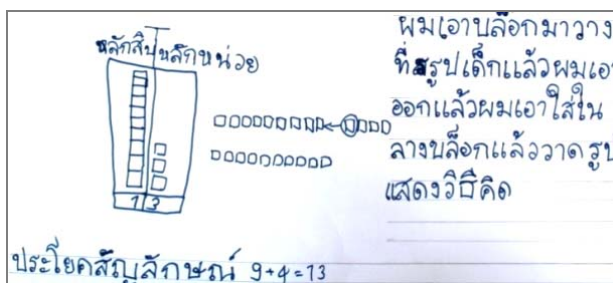 หลักสิบ หลักหน่วย
13
ผมเอาบล็อกมาวาง
ที่รูปเด็กแล้วผมเอา
ออกแล้วผมเอาใส่ใน
ลางบล็อกแล้ววาดรูป
แสดงวิธีคิด
ประโยคสัญลักษณ์ 9+4=13